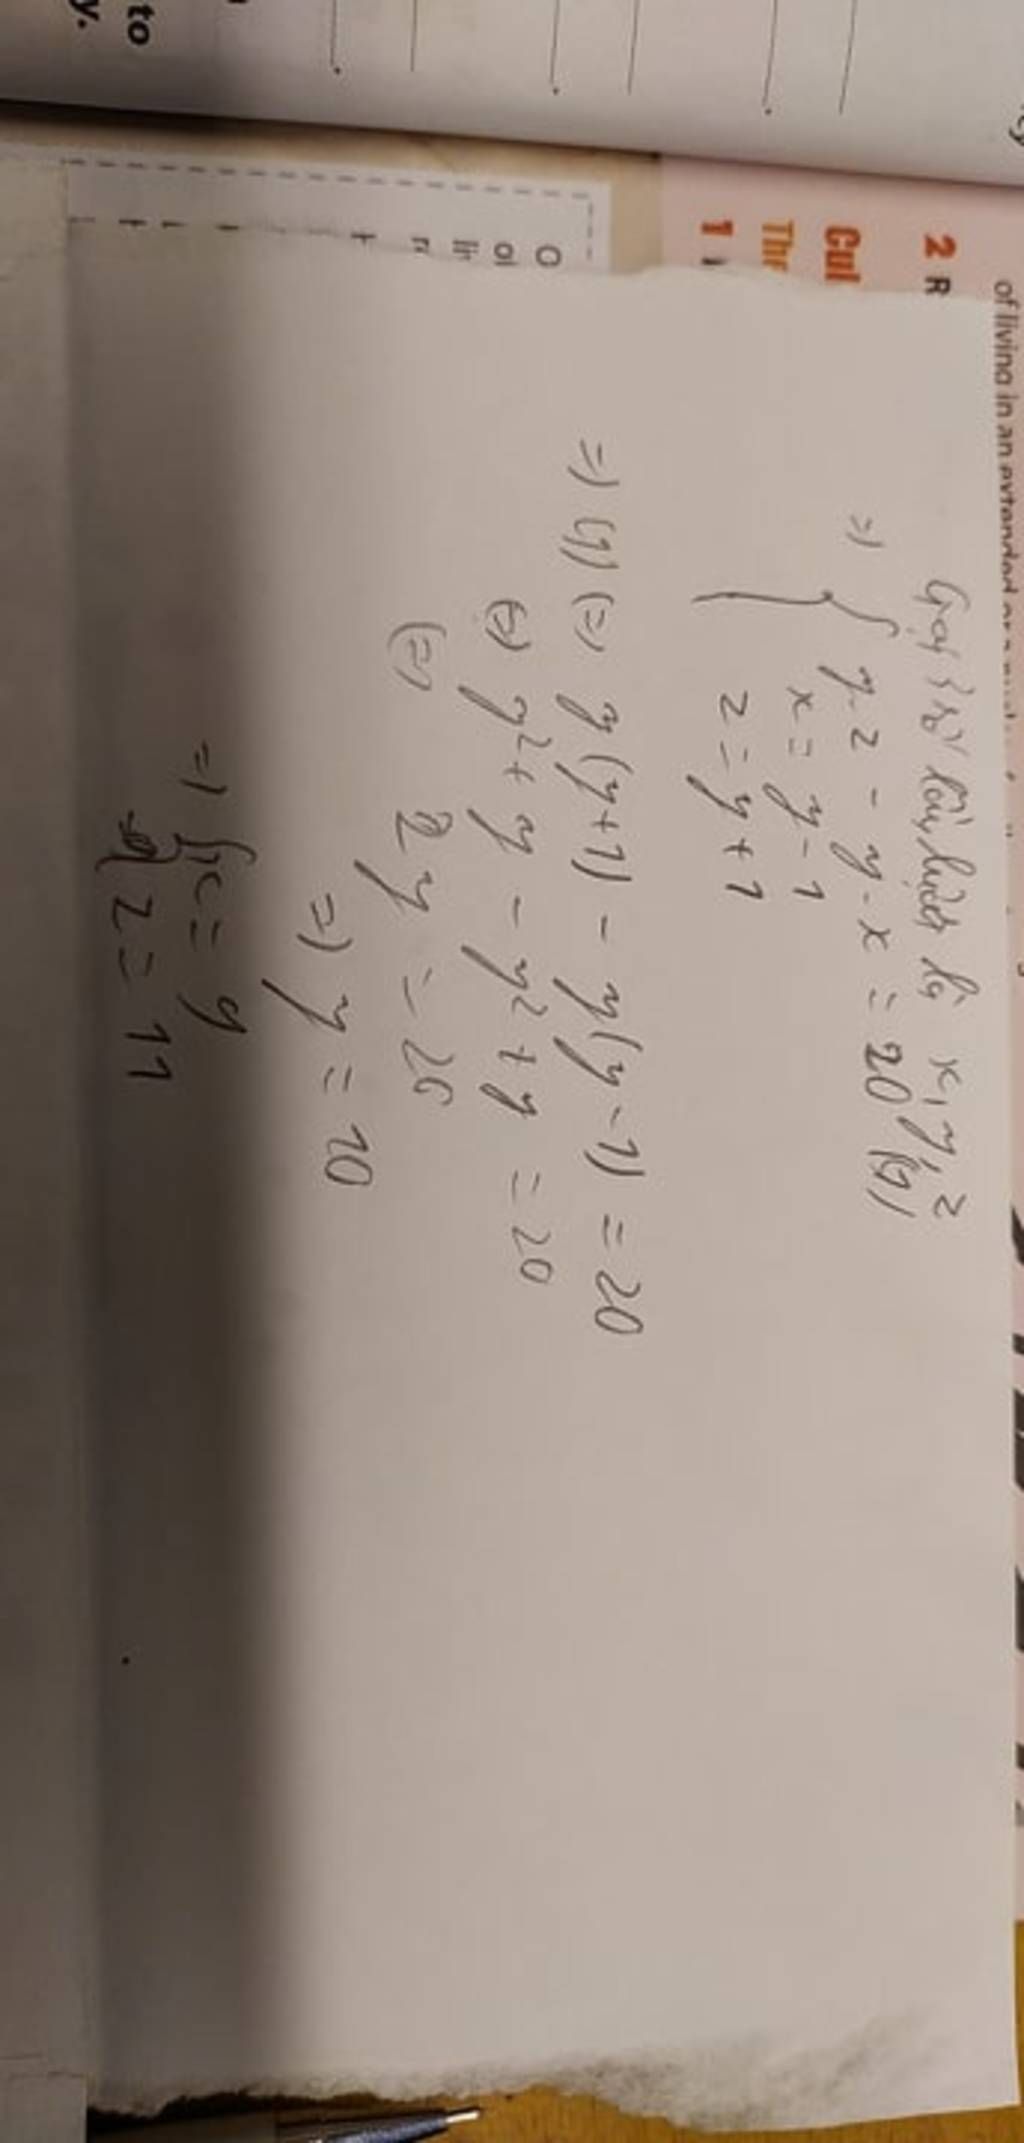 Gọi 3 số lần lượt là x, y, z
=) { y.z - y.x = 20 (1)
x = y - 1
z = y + 1
=) (1) (=) y(y+1) - y(y-1) = 20
(=) y² + y - y² + y = 20
(=) 2y = 20
=) y = 10
=) { x = 9
z = 11
of living in an extended or a
2 R
Cul
The
1
to
y.